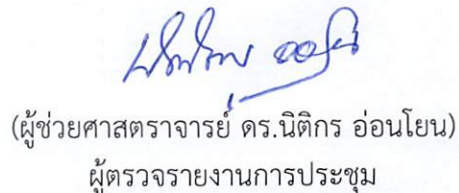 (ผู้ช่วยศาสตราจารย์ ดร.นิติกร อ่อนโยน)
ผู้ตรวจรายงานการประชุม